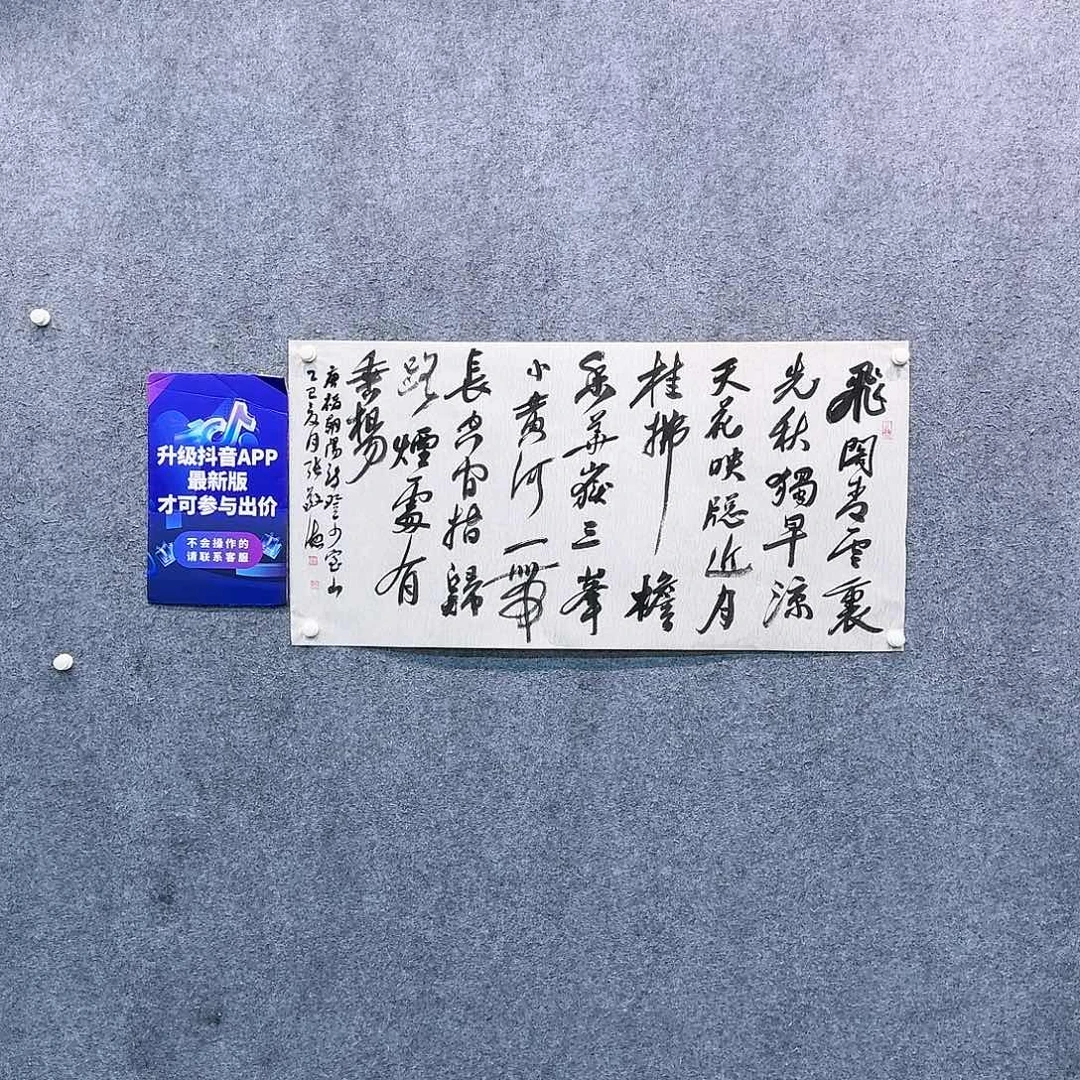 飛閣青雲裏
先秋獨早涼
天花映牕近月
桂拂檐
香華嶽三峯
小黄河一帶
長空間指歸
路煙處有
垂楊
唐楊朝陽
乙巳夏月張
升级抖音APP
最新版
才可参与出价
不会操作的
请联系客服